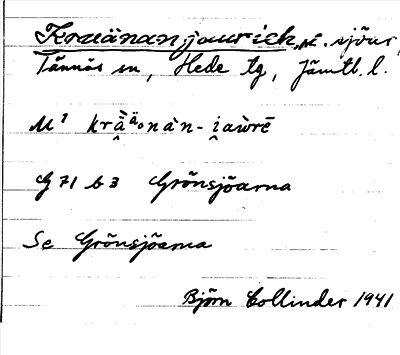 Kraeänanjaurich, n. sjöar,
Tännäs sn, Hede tg, Jämtl. l.
M¹ krä̀ä̭nàn-i̭awrē
G 71 b 3 Grönsjöarna
Se Grönsjöarna
Björn Collinder 1941